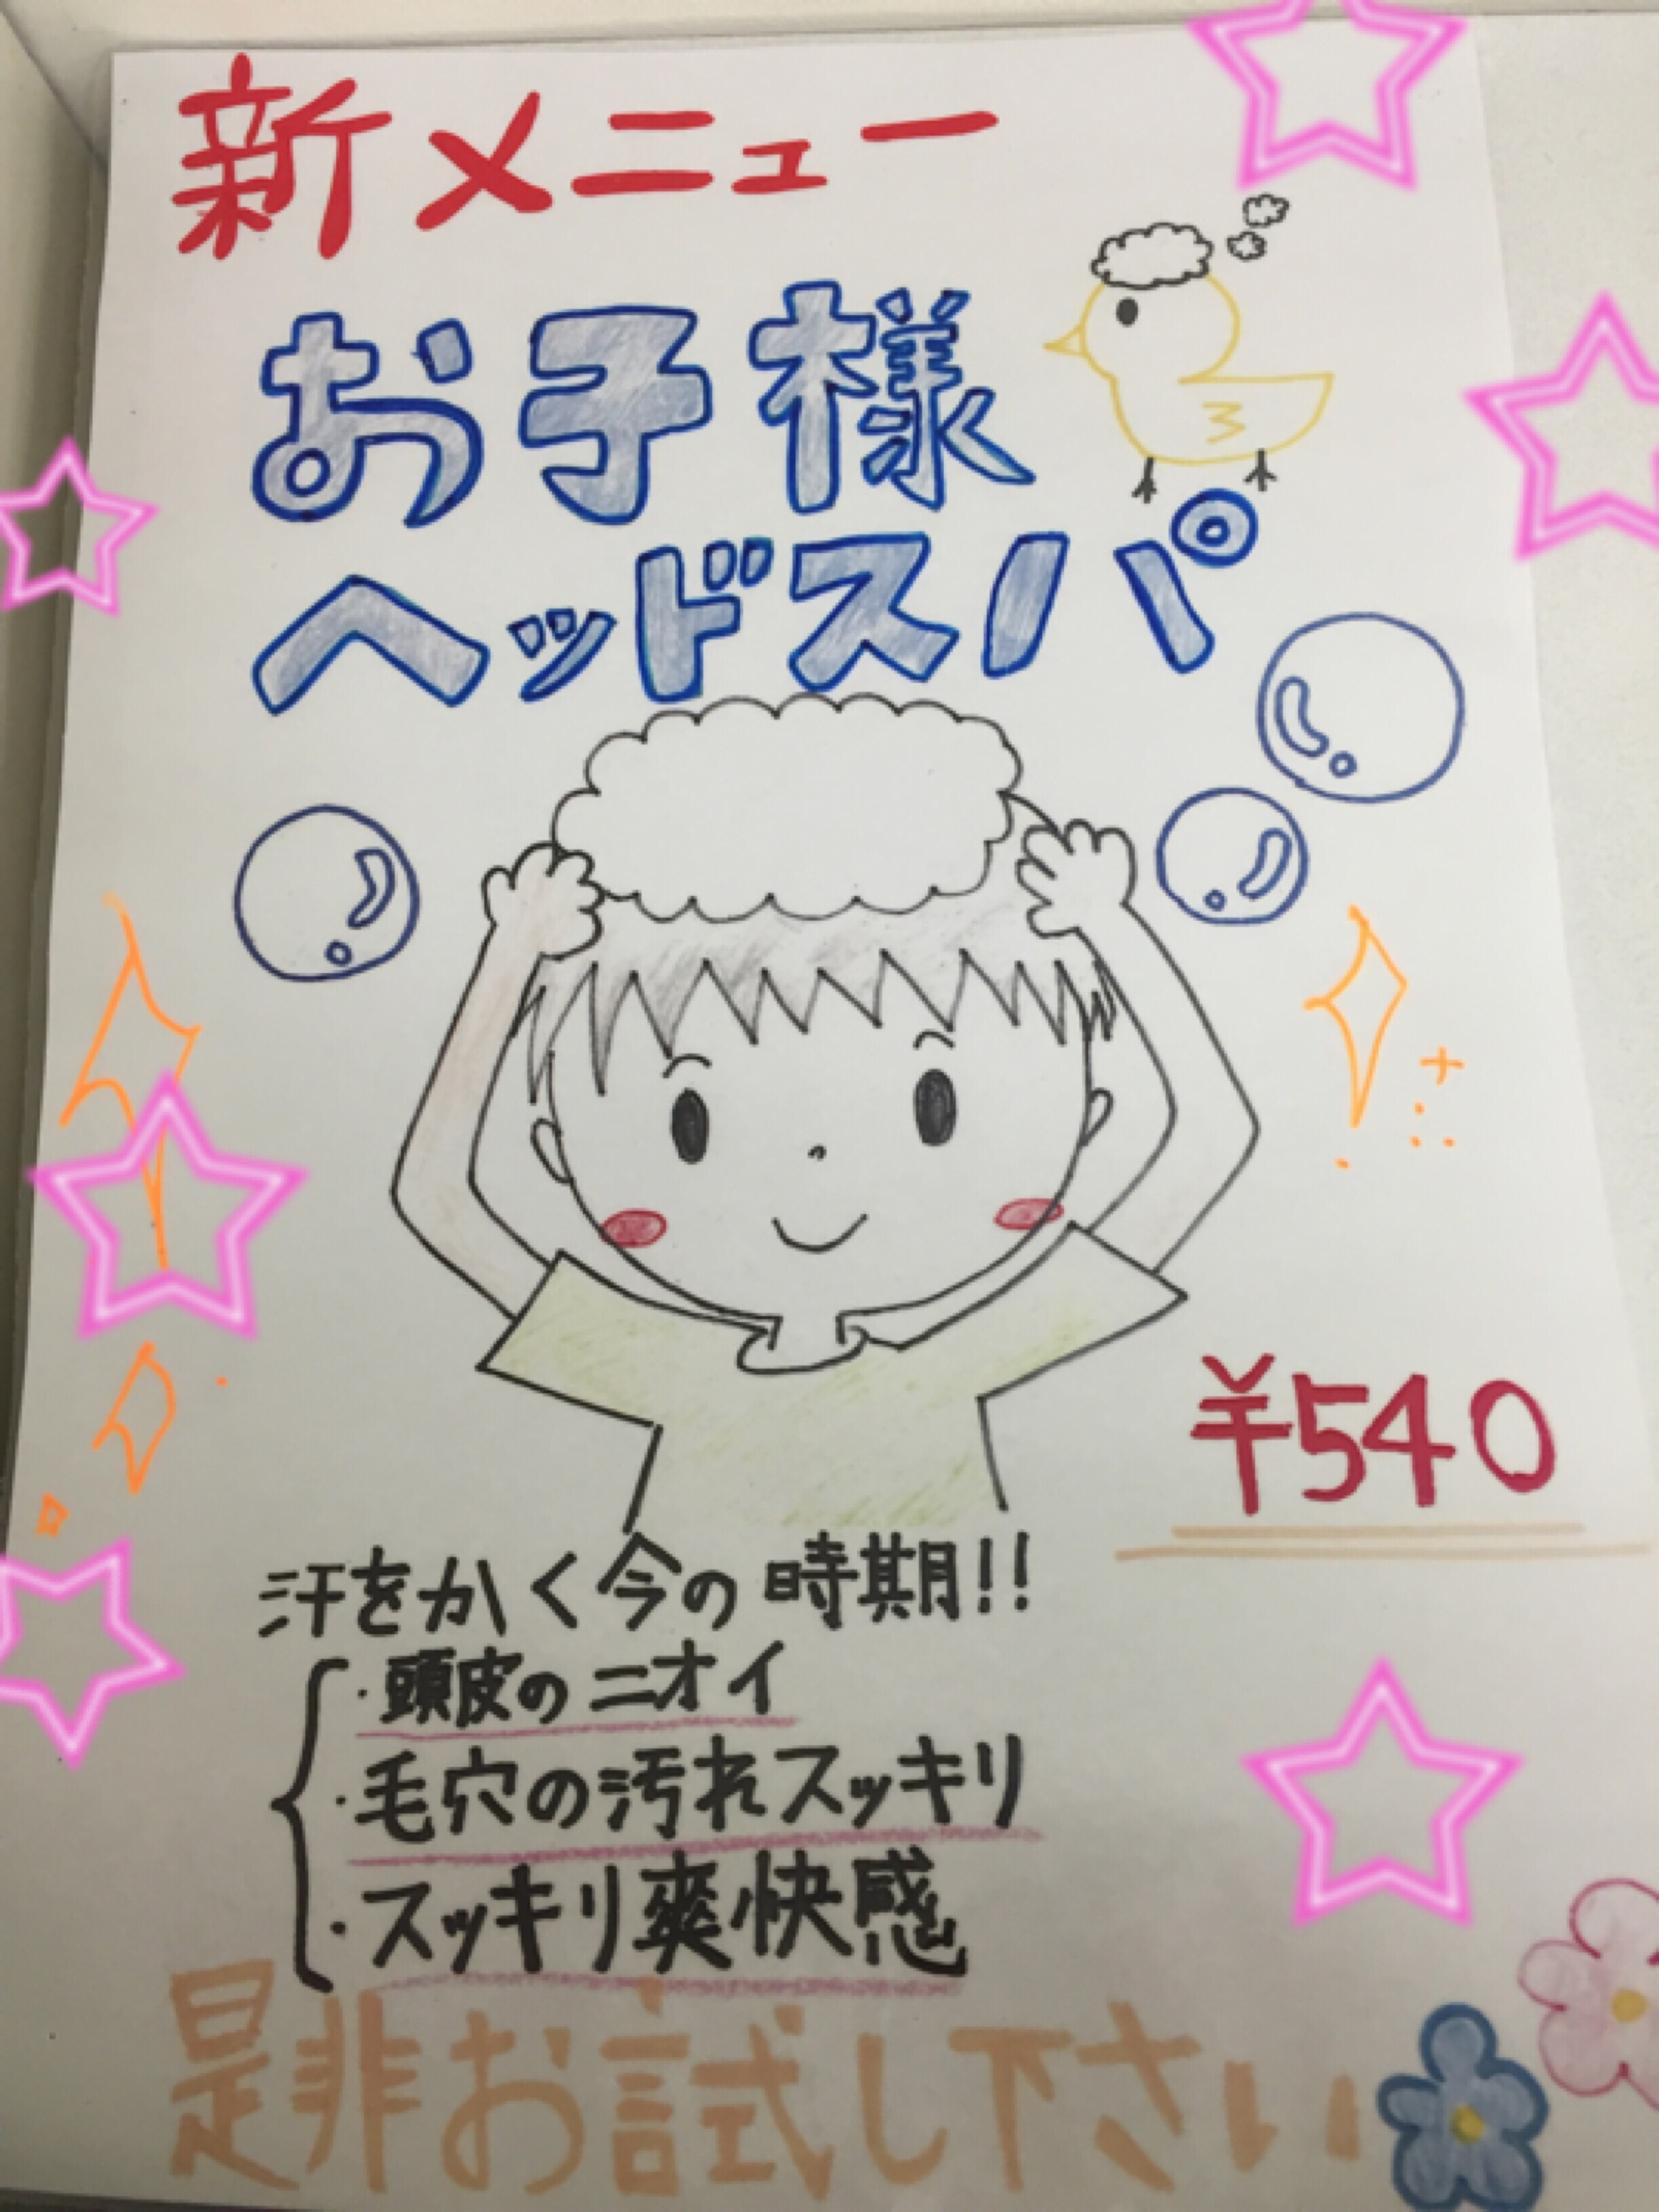 新メニュー
お子様
ヘッドスパ
¥540
汗をかく今の時期!!
・頭皮のニオイ
・毛穴の汚れスッキリ
・スッキリ爽快感
是非お試し下さい